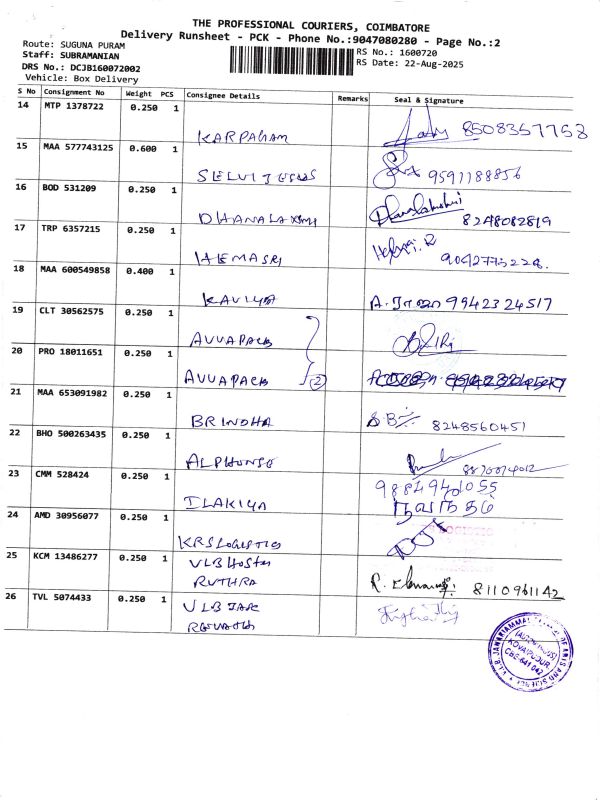 THE PROFESSIONAL COURIERS, COIMBATORE
Delivery Runsheet - PCK - Phone No.:9047080280 - Page No.:2
Route: SUGUNA PURAM
RS No.: 1600720
Staff: SUBRAMANIAN
RS Date: 22-Aug-2025
DRS No.: DCJB1600720002
Vehicle: Box Delivery
S No Consignment No Weight PCS Consignee Details Remarks Seal & Signature
14 MTP 1378722 0.250 1
KARPAGAM 8508357758
15 MAA 577743125 0.600 1
SELVI JESUS 9597188856
16 BOD 531209 0.250 1
DHANALAXMI Dhanalakshmi 8248082819
17 TRP 6357215 0.250 1
HEMASRI 9042773228.
18 MAA 600549858 0.400 1
KAVIYA A. ராஜா 9942324517
19 CLT 30562575 0.250 1
AVVAPACK
20 PRO 18011651 0.250 1
AVVAPACK (2)
21 MAA 653091982 0.250 1
BRINDHA 8248560451
22 BHO 500263435 0.250 1
ALPHONSE
23 CMM 528424 0.250 1
ILAKIYA
24 AMD 30956077 0.250 1
KRS LOGISTICS
25 KCM 13486277 0.250 1
VLB HOSTEL
RUTHRA R. 8110961142
26 TVL 5074433 0.250 1
VLB JAK
REVATHI
(AUTONOMOUS)
KOVAIPUDUR
CBE-641 042